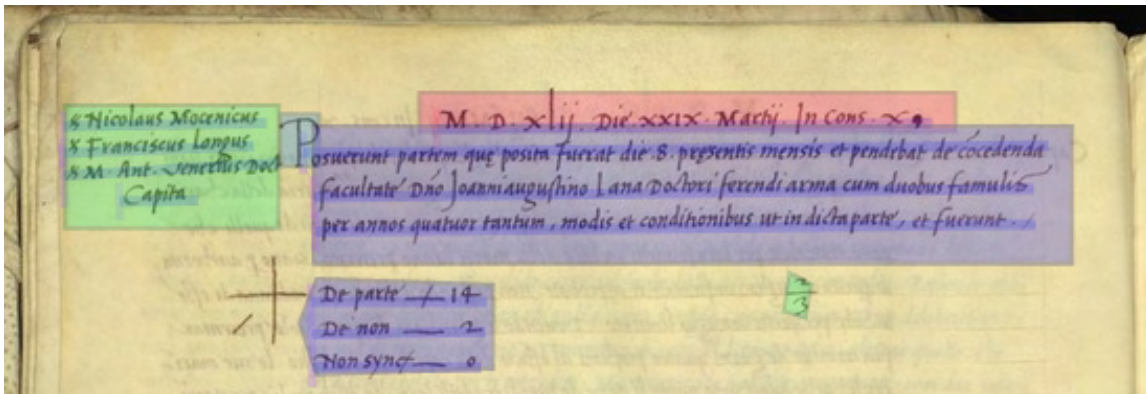 M. D. xlij. Die. xxix. Martij. In Cons. x.
Nicolaus Mocenicus
Franciscus Longus
M. Ant. Venerius Doct
Capita
Posuerunt partem quę posita fuerat die .8. pręsentis mensis et pendebat de cōcedenda
facultate Dno Joanniaugustino Lana Doctori ferendi arma cum duobus famulis
per annos quatuor tantum, modis et conditionibus ut in dicta parte, et fuerunt ./
De parte / 14
De non 2
Non sync 0
2
3